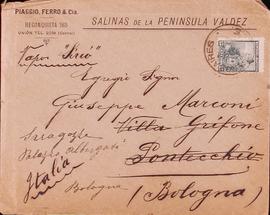 PIAGGIO, FERRO & Cia.
RECONQUISTA 365
UNIÓN TEL. 2084 (Central)
SALINAS DE LA PENINSULA VALDEZ
Vapor "Sirio"
Egregio Signor
Giuseppe Marconi
Villa Grifone
Palazzo Albergati
Pontecchio
Italia
Bologna
(Bologna)